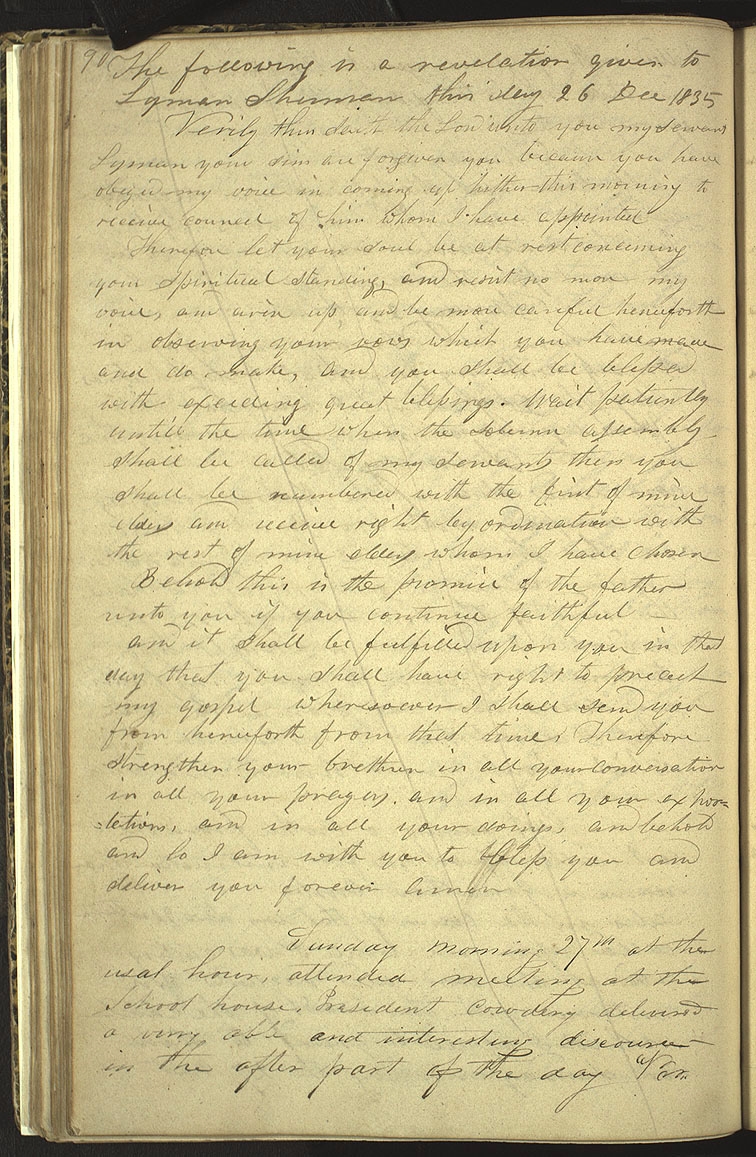 90 The following is a revelation given to
Lyman Sherman this day 26 Dec 1835
Verily thus saith the Lord unto you my servant
Lyman your sins are forgiven you because you have
obeyed my voice in coming up hither this morning to
receive councel of him whom I have appointed
Therefore let your soul be at rest concerning
your spiritual standing, and resist no more my
voice, and arise up and be more careful henceforth
in observing your vows which you have made
and do make, and you shall be blessed
with exceding great blessings. Wait patiently
untill the time when the solemn assembly
shall be called of my servants then you
shall be numbered with the first of mine
elders and receive right by ordination with
the rest of mine elders whom I have chosen
Behold this is the promise of the father
unto you if you continue faithful
and it shall be fulfilled upon you in that
day that you shall have right to preach
my gospel wheresoever I shall send you
from henceforth from that time. Therefore
strengthen your brethren in all your conversation
in all your prayers, and in all your exhor=
=tations, and in all your doings, and behold
and lo I am with you to bless you and
deliver you forever Amen
Sunday morning 27th at the
usal hour, attended meeting at the
School house, President Cowdery delivered
a very able and interesting discourse
in the after part of the day